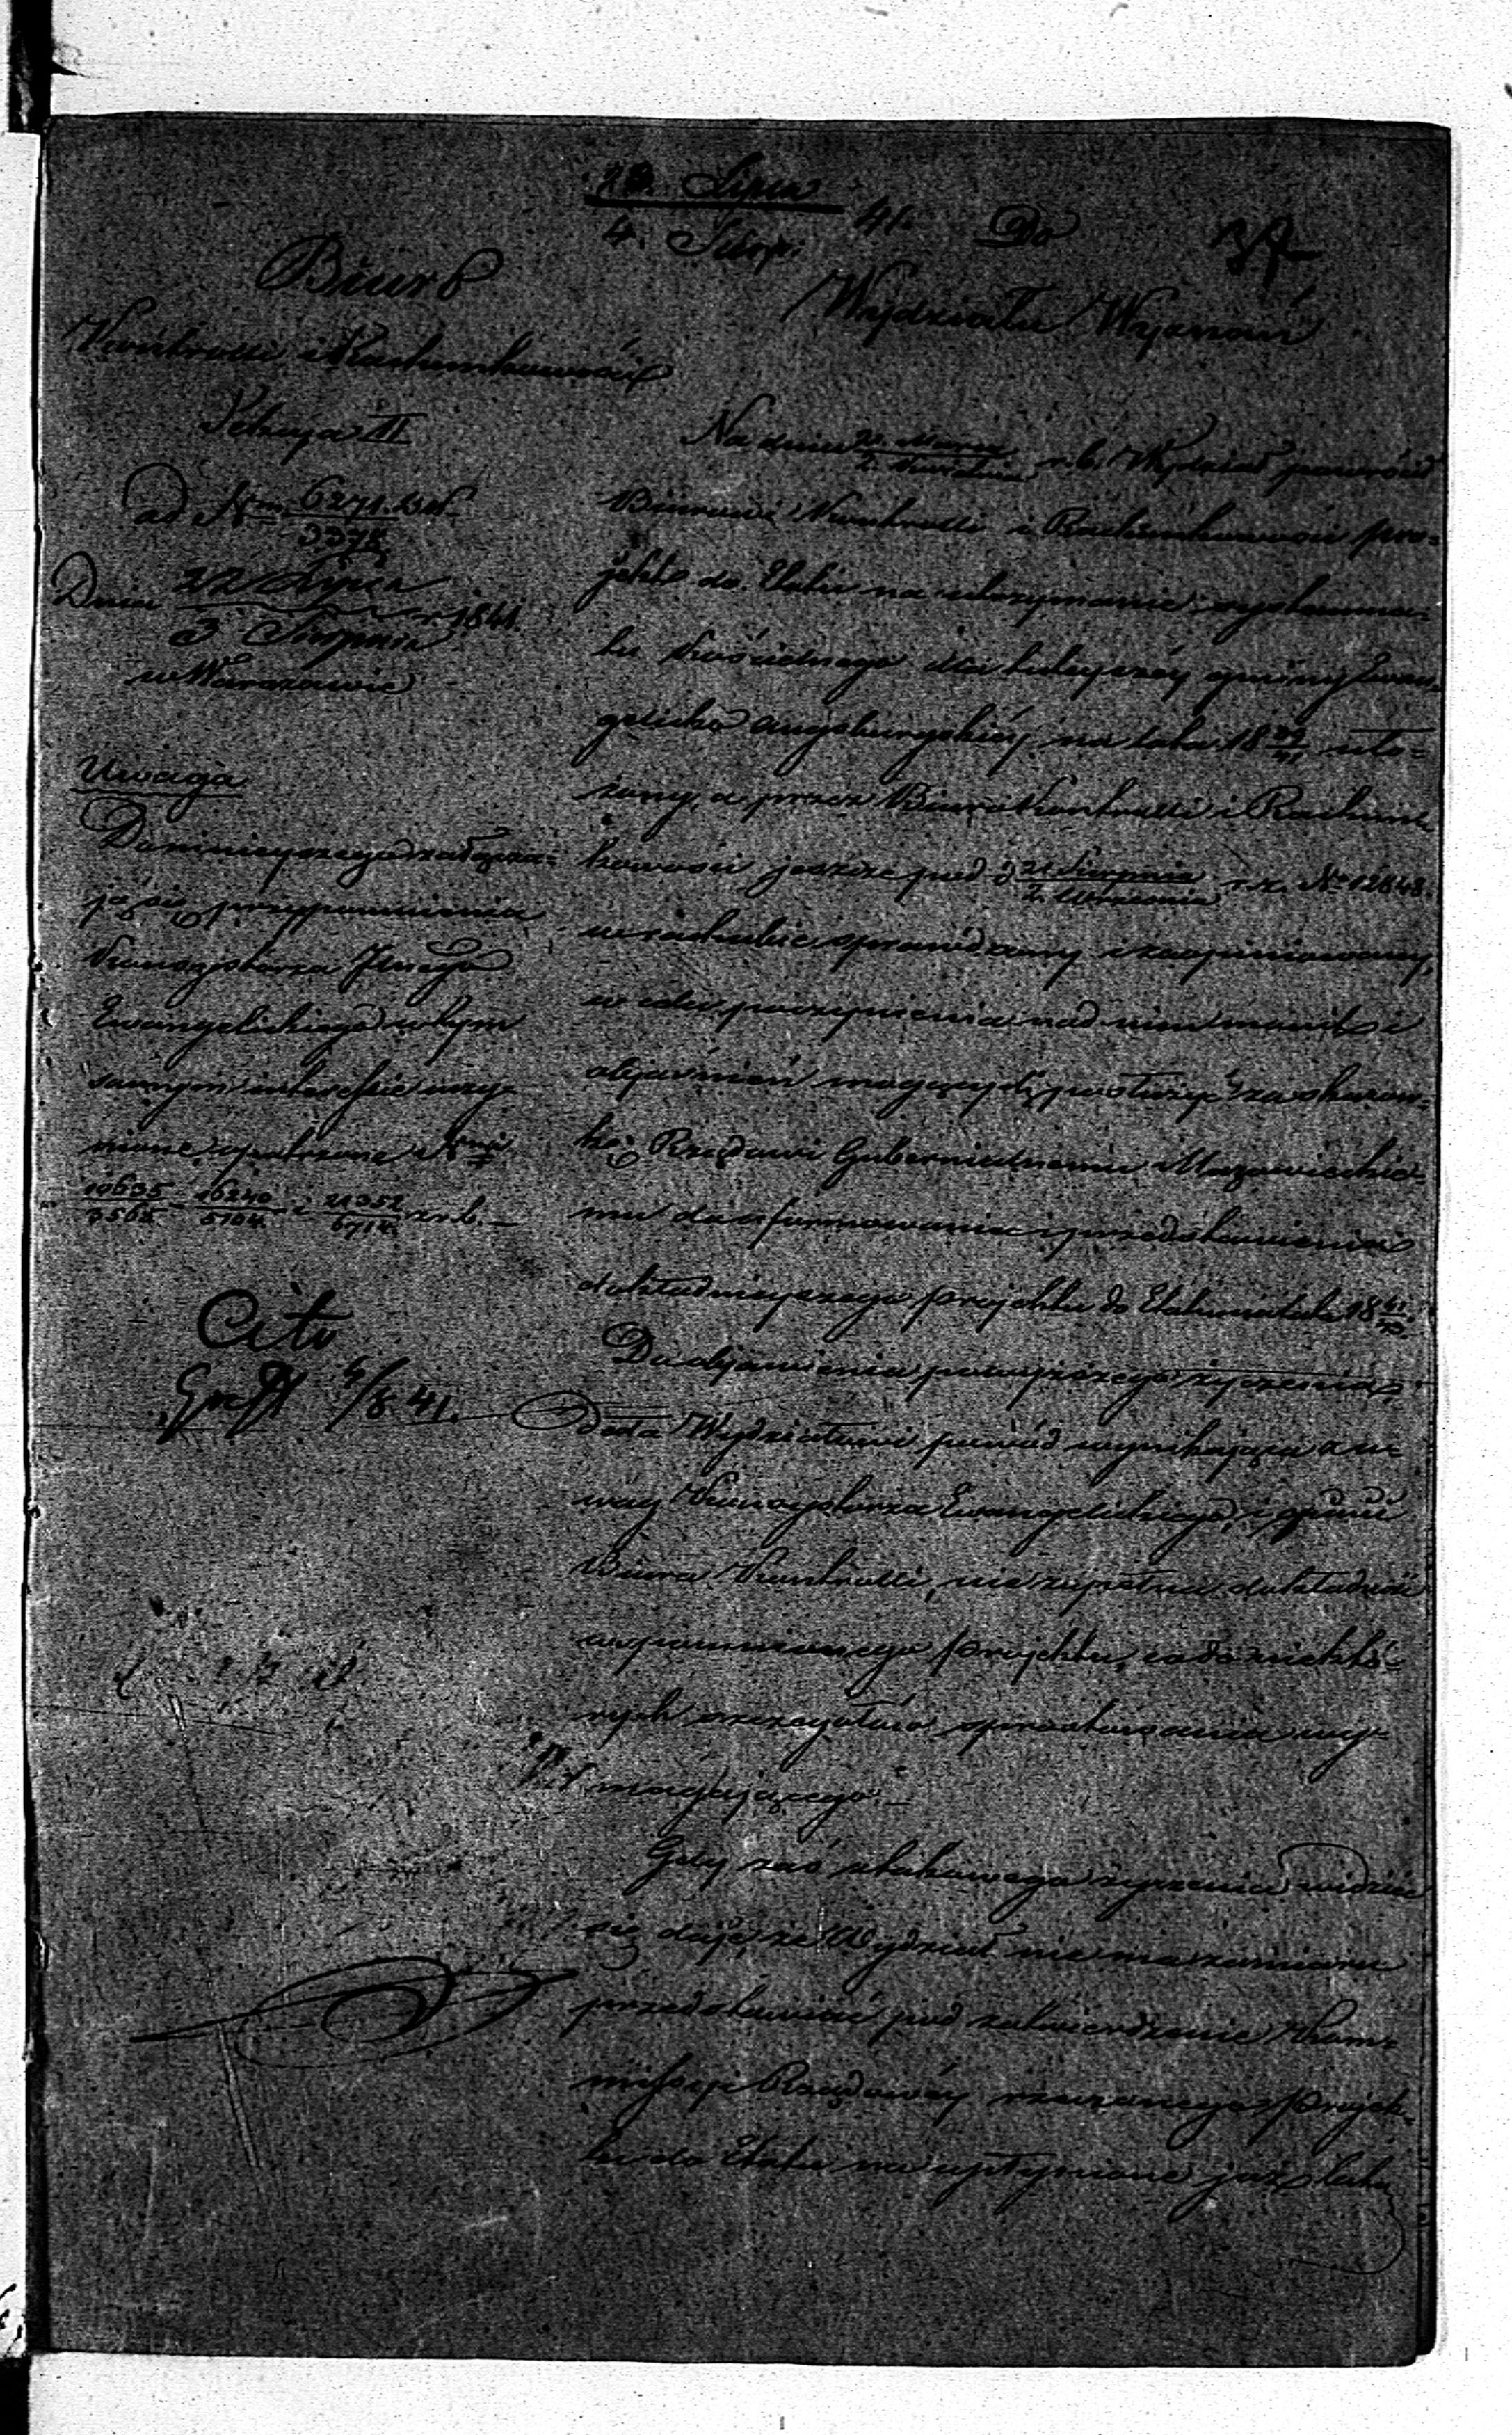 23. Lipca
4. Sierp. 41.
Do
37
Biuro
Kontrolli i Rachunkowości
Sekcya II
ad Nrm 6271.
3378
Dnia 22 Lipca
3 Sierpnia r. 1841.
w Warszawie
Uwaga
Do niniejszego załącza=
ją się przypomnienia
Konsystorza Jlnego
Ewangelickiego w tym
samym interessie uczy=
nione, opatrzone Nrmi
10635 16240 i 21352 z r.b.
3565 5104 6714
Cito
4/8 41.
Wydziału Wyznań
Na dniu 21 Marca
2 Kwietnia r. b. Wydział powrócił
Biurowi Kontrolli i Rachunkowości pro=
jekt do Etatu na utrzymanie
ku Kościelnego dla tutejszéj gminy Ewan=
gelicko Augsburgskiéj na lata 18 39/41 uło=
żony, a przez Biuro Kontrolli i Rachun=
kowości jeszcze pod d 21 Sierpnia
2 Września r.z. No 12848.
w rachubie sprawdzony i zaopiniowany,
w celu poczynienia nad nim uwag i
objaśnień mogących posłużyć za skazów=
kę Rządowi Gubernialnemu Mazowieckie=
mu do uformowania i przedstawienia
dokładniejszego projektu do Etatu na lata 18 41/43.
Do objawienia powyższego życzenia,
dała Wydziałowi powód wynikająca z u=
wag Konsystorza Ewangelickiego, i opinii
Biura Kontrolli, nie zupełna dokładność
wspomnionego projektu, co do niektó=
rych szczegółów sprostowania wy=
magającego.
Gdy zaś z takowego życzenia widzieć
się daje, że Wydział nie ma zamiaru
przedstawić pod zatwierdzenie Kom=
missyi Rządowéj rzeczonego projek=
tu do Etatu na upłynione już lata